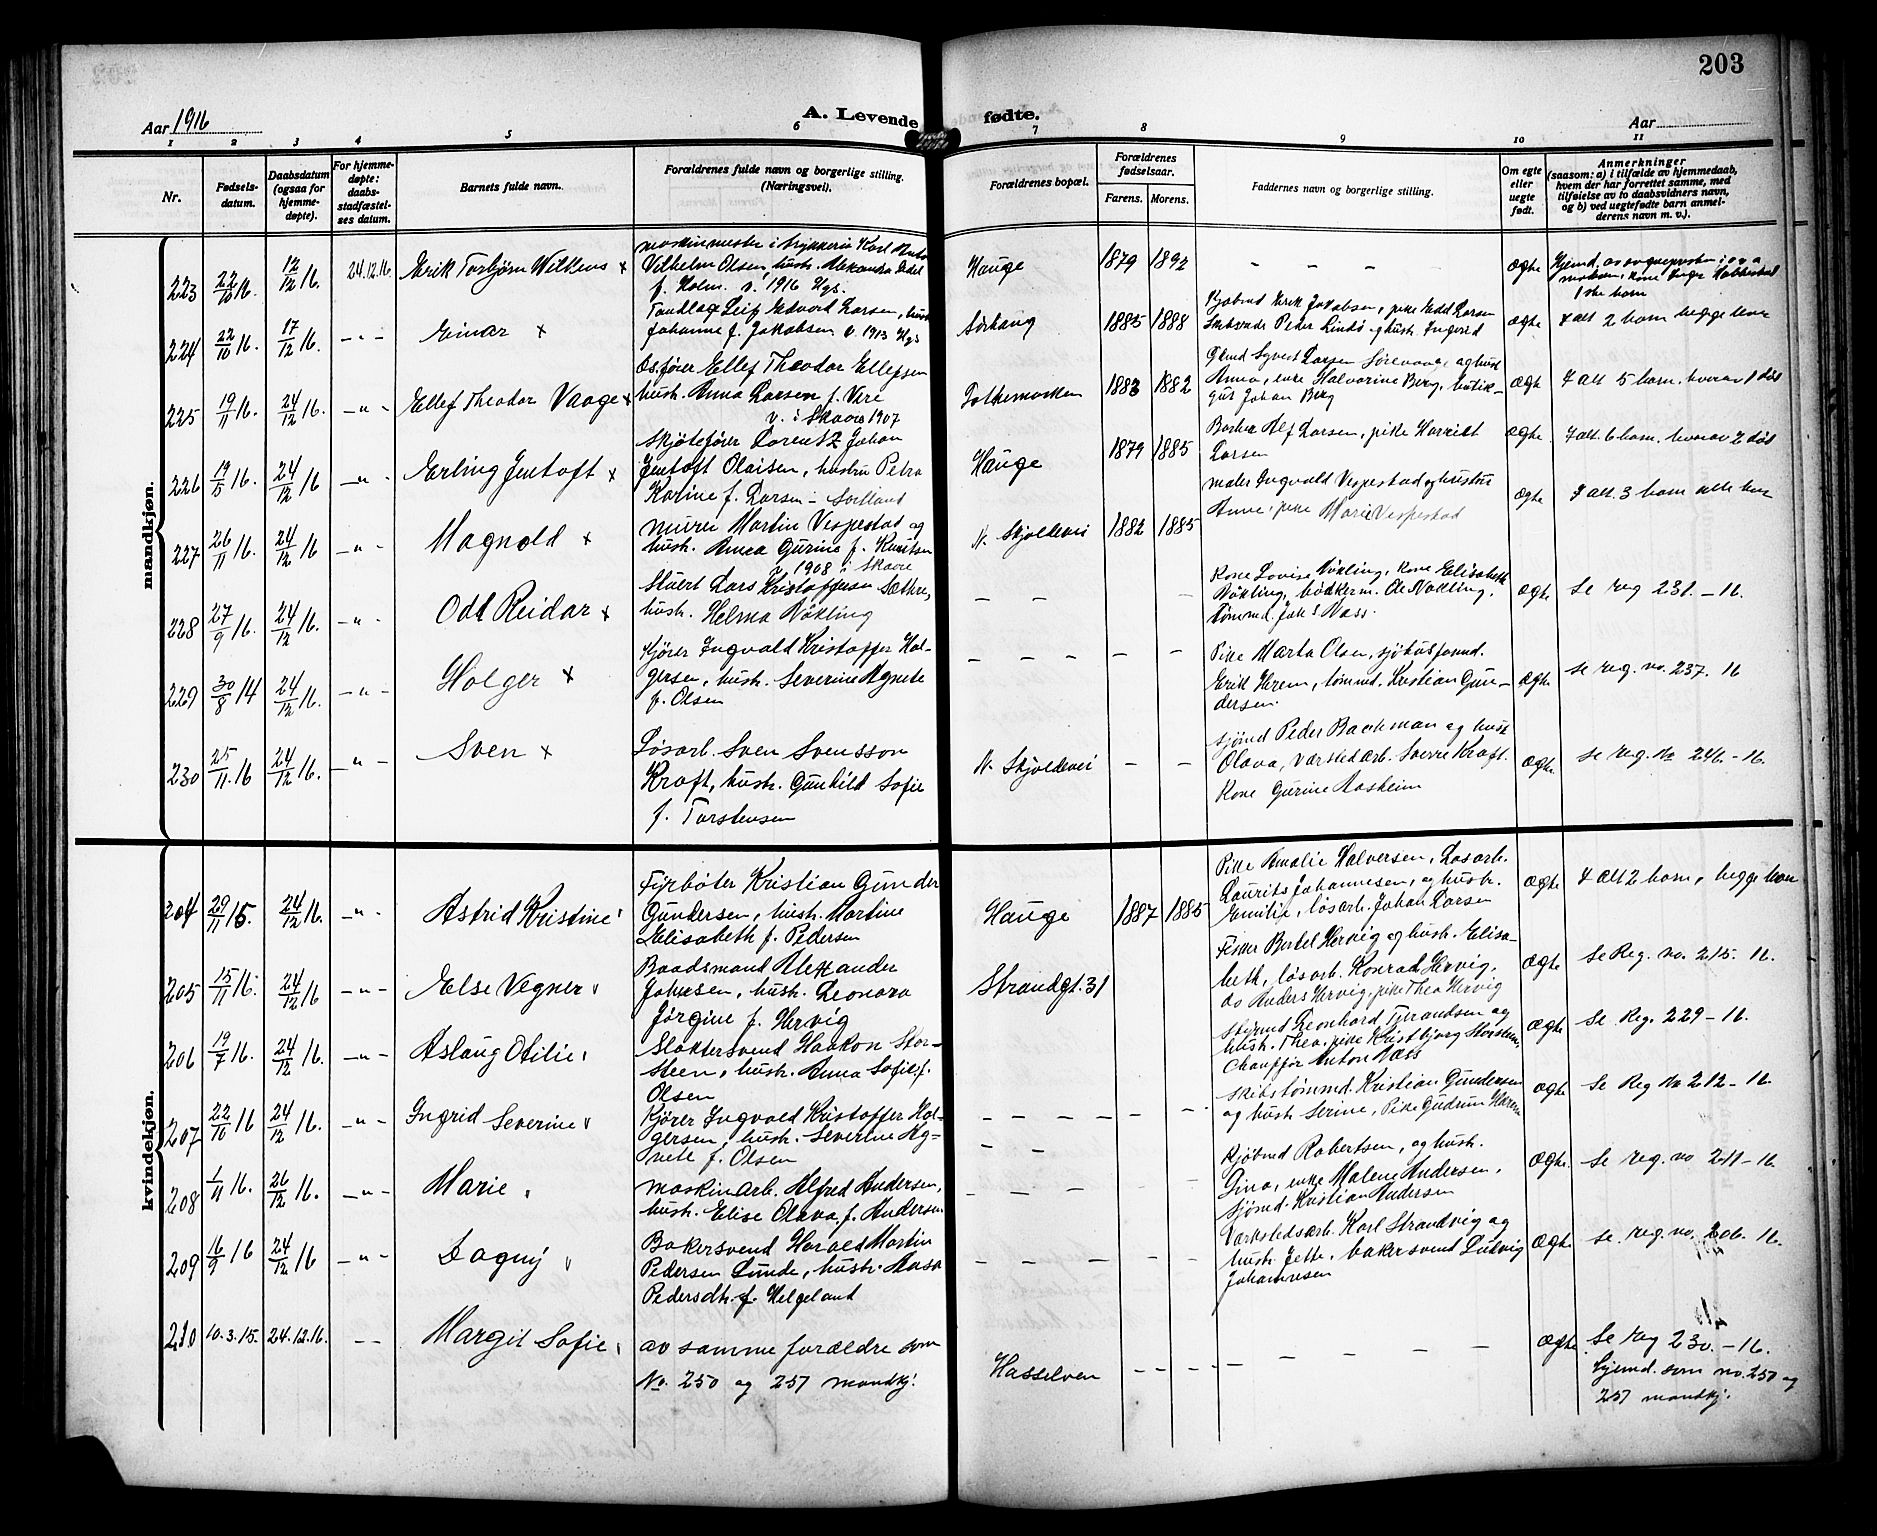 203
Aar 1916
A. Levende fødte.
Aar
1 2 3 4 5 6 7 8 9 10 11
Nr.
Fødsels-
datum.
Daabsdatum
(ogsaa for
hjemme-
døpte).
For hjemme-
døpte:
daabs-
stadfæstel-
ses datum.
Barnets fulde navn.
Forældrenes fulde navn og borgerlige stilling.
(Næringsvei).
Forældrenes bopæl.
Forældrenes
fødselsaar.
Farens. Morens.
Faddernes navn og borgerlige stilling.
Om egte
eller
uegte
født.
Anmerkninger
(saasom: a) i tilfælde av hjemmedaab,
hvem der har forrettet samme, med
tilføielse av to daabsvidners navn,
og b) ved uegtefødte barn anmel-
derens navn m. v.).
mandkjøn.
223 22/10 16. 12/12 16. 24.12.16. Erik Torbjørn Wilkens x
maskinmester i trykkeri Karl
Vilhelm Olsen, hustr. Alexandra
f. Holm. v. 1916 Hgs.
Hauge 1879 1892 - - - - ægte
224 22/10 16. 17/12 16. -"- Einar x
Tandlæge Leif Edvard Larsen, hustr
Johanne f. Jakobsen v. 1913 Hgs
Sørhaug 1885 1888
Kjøbmd Erik Jakobsen, pike Edd Larsen
Skibsrede Peder Lindø og hustr. Ingerid
ægte I alt 2 barn begge leve
225 19/11 16. 24/12 16. -"- Ellef Theodor Vaage x
Osfører Ellef Theodor Ellefsen
hustr. Anna Larsen f. Vere
v. i Skaare 1907
1883 1882
Gmd Syvert Larsen Sørevaag, og hust
Anna, enke Halvorine Berg, butik-
gut Johan Berg
ægte I alt 5 barn. hvorav 1 død
226 19/5 16. 24/12 16 -"- Erling Jentoft x
Skjøtefører Lorentz Johan
Jentoft Olaisen, hustru Petra
Karine f. Larsen
Hauge 1879 1885
Barber Alf Larsen, pike Harriet
Larsen
ægte. I alt 6 barn. hvorav 2 død
227 26/11 16. 24/12 16 -"- Magnold x
murer Martin Vespestad og
hustr. Anna Gurine f. Knutsen
v. 1908 i Skaare
N. Skjoldevei 1882 1885
maler Ingvald Vespestad og hustru
Anna, pike Marie Vespestad
ægte I alt. 3 barn alle leve
228 27/9 16. 24/12 16. -"- Odd Reidar x
Stuert Lars Kristoffersen Sæthre,
hustr. Helma Nøkling
- - -
Kone Lovise Nøkling, kone Elisabeth
Nøkling, bødkerm. Ole Nøkling,
tømmd. Jak. Næss.
ægte Se reg 231. - 16.
229 30/8 14 24/12 16. -"- Holger x
Kjører Ingvald Kristoffer Hol-
gersen, hustr. Severine Agnete
f. Olsen
- - - - -
Pike Marta Olsen, sjøhusformd.
Erik Herem, tømmd. Kristian Gun-
dersen.
ægte. se reg. no. 237. 16
230 25/11 16 24/12 16. -"- Sven x
Løsarb. Sven Svensson
Kraft, hustr. Gunhild Sofie
f. Torstensen
N. Skjoldevei - -
sjømd Peder Backman og hust
Olava, Værstedarb. Sverre Kraft.
Kone Gurine Aasheim
ægte. Se reg. No 246 - 16.
kvindekjøn.
204 29/11 15. 24/12 16. -"- Astrid Kristine
Fyrbøter Kristian Gunder
Gundersen, hustr. Martine
Elisabeth f. Pedersen
Hauge 1887 1885
Pike Amalie Halversen, Løsarb.
Laurits Johannesen, og hustr.
Emilie, løsarb. Johan Larsen
ægte I alt 2 barn, begge leve
205 15/11 16. 24/12 16 -"- Else Vegner
Baadsmand Alexander
Johnsen, hustr. Leonora
Jørgine f. Hervig
Strandgt. 31
Fisker Bertel Hervig og hustr. Elisa-
beth, løsarb. Konrad Hervig,
do Anders Hervig. pike Thea Hervig
ægte. Se Reg. no. 215. 16.
206 19/7 16. 24/12 16. -"- Aslaug Otilie
Slaktersvend Haakon Stor-
steen, hustr. Anna Sofie f.
Olsen
Styrmd Leonhard Tjerandsen og
hustr. Thea. pike Kristbjørg Storsteen,
Chauffør Anton Næss
ægte Se. Reg. 229 - 16.
207 22/10 16 24/12 16. -"- Ingrid Severine
Kjører Ingvald Kristoffer Hol-
gersen, hustr. Severine Ag-
nete f. Olsen
- - - - - -
Skibstømmd. Kristian Gundersen
og hustr Serine, Pike Gudrun Harem
ægte Se Reg No 212 - 16.
208 1/11 16. 26/12 16. -"- Marie
maskinarb. Alfred Andersen,
hustr. Elise Olava f. Andersen
- - - - -
Kjøbmd Robertsen, og hustr.
Gina, enke Malene Andersen,
sjømd. Kristian Andersen
ægte. Se reg. no 211 - 16.
209 16/9 16 24/12 16 -"- Dagny
Bakersvend Harald Martin
Pedersen Lunde, hustr. Aasa
Pedersdtr. f. Helgeland
- - - - - -
Værkstedsarb. Karl Strandvig og
hustr. Jette, bakersvend Ludvig
Johannesen
ægte. se. reg. no. 206. 16.
210 10.3.15. 24.12.16. -- Margit Sofie
av samme forældre som
No. 250 og 257 mandkj.
Hasselveen - - - - - - - - -
ægte. Se reg 230. - 16.
hjemd. som no. 250 og
257 mandkj.